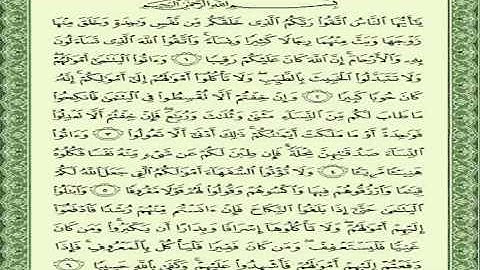 بِسْمِ اللَّهِ الرَّحْمَٰنِ الرَّحِيمِ
يَٰٓأَيُّهَا النَّاسُ اتَّقُوا رَبَّكُمُ الَّذِى خَلَقَكُم مِّن نَّفْسٍ وَٰحِدَةٍ وَخَلَقَ مِنْهَا
زَوْجَهَا وَبَثَّ مِنْهُمَا رِجَالًا كَثِيرًا وَنِسَآءً ۚ وَاتَّقُوا اللَّهَ الَّذِى تَسَآءَلُونَ
بِهِۦ وَالْأَرْحَامَ ۚ إِنَّ اللَّهَ كَانَ عَلَيْكُمْ رَقِيبًا ١ وَءَاتُوا الْيَتَٰمَىٰٓ أَمْوَٰلَهُمْ ۖ
وَلَا تَتَبَدَّلُوا الْخَبِيثَ بِالطَّيِّبِ ۖ وَلَا تَأْكُلُوٓا أَمْوَٰلَهُمْ إِلَىٰٓ أَمْوَٰلِكُمْ ۚ إِنَّهُۥ
كَانَ حُوبًا كَبِيرًا ٢ وَإِنْ خِفْتُمْ أَلَّا تُقْسِطُوا فِى الْيَتَٰمَىٰ فَانكِحُوا
مَا طَابَ لَكُم مِّنَ النِّسَآءِ مَثْنَىٰ وَثُلَٰثَ وَرُبَٰعَ ۖ فَإِنْ خِفْتُمْ أَلَّا تَعْدِلُوا
فَوَٰحِدَةً أَوْ مَا مَلَكَتْ أَيْمَٰنُكُمْ ۚ ذَٰلِكَ أَدْنَىٰٓ أَلَّا تَعُولُوا ٣ وَءَاتُوا
النِّسَآءَ صَدُقَٰتِهِنَّ نِحْلَةً ۚ فَإِن طِبْنَ لَكُمْ عَن شَىْءٍ مِّنْهُ نَفْسًا فَكُلُوهُ
هَنِيٓـًٔا مَّرِيٓـًٔا ٤ وَلَا تُؤْتُوا السُّفَهَآءَ أَمْوَٰلَكُمُ الَّتِى جَعَلَ اللَّهُ لَكُمْ
قِيَٰمًا وَارْزُقُوهُمْ فِيهَا وَاكْسُوهُمْ وَقُولُوا لَهُمْ قَوْلًا مَّعْرُوفًا ٥ وَابْتَلُوا
الْيَتَٰمَىٰ حَتَّىٰٓ إِذَا بَلَغُوا النِّكَاحَ فَإِنْ ءَانَسْتُم مِّنْهُمْ رُشْدًا فَادْفَعُوٓا
إِلَيْهِمْ أَمْوَٰلَهُمْ ۖ وَلَا تَأْكُلُوهَآ إِسْرَافًا وَبِدَارًا أَن يَكْبَرُوا ۚ وَمَن كَانَ
غَنِيًّا فَلْيَسْتَعْفِفْ ۖ وَمَن كَانَ فَقِيرًا فَلْيَأْكُلْ بِالْمَعْرُوفِ ۚ فَإِذَا
دَفَعْتُمْ إِلَيْهِمْ أَمْوَٰلَهُمْ فَأَشْهِدُوا عَلَيْهِمْ ۚ وَكَفَىٰ بِاللَّهِ حَسِيبًا ٦